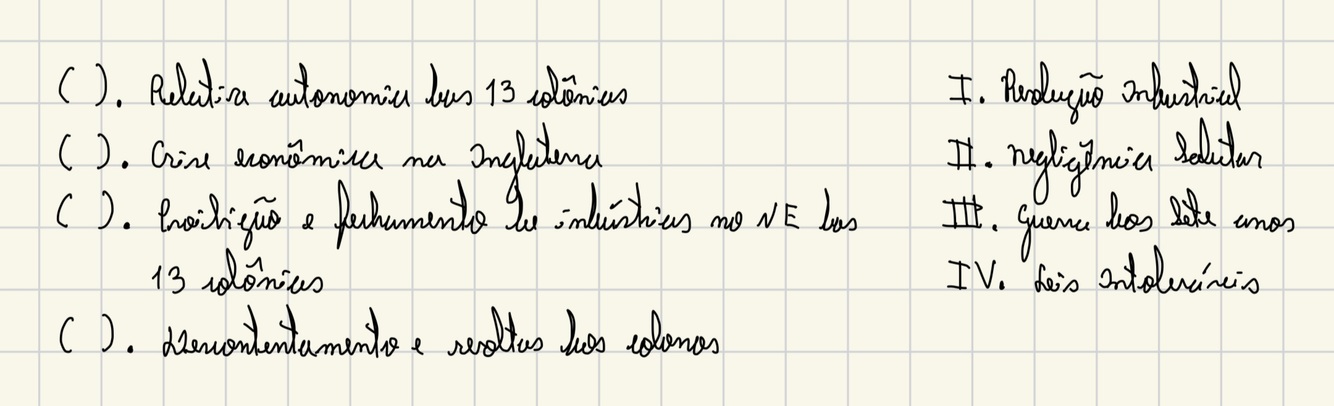 ( ). Relativa autonomia das 13 colônias
( ). Crise econômica na Inglaterra
( ). Proibição e fechamento de indústrias no NE das
13 colônias
( ). Descontentamento e revoltas dos colonos
I. Revolução Industrial
II. negligência Salutar
III. Guerra dos Sete anos
IV. Leis Intoleráveis